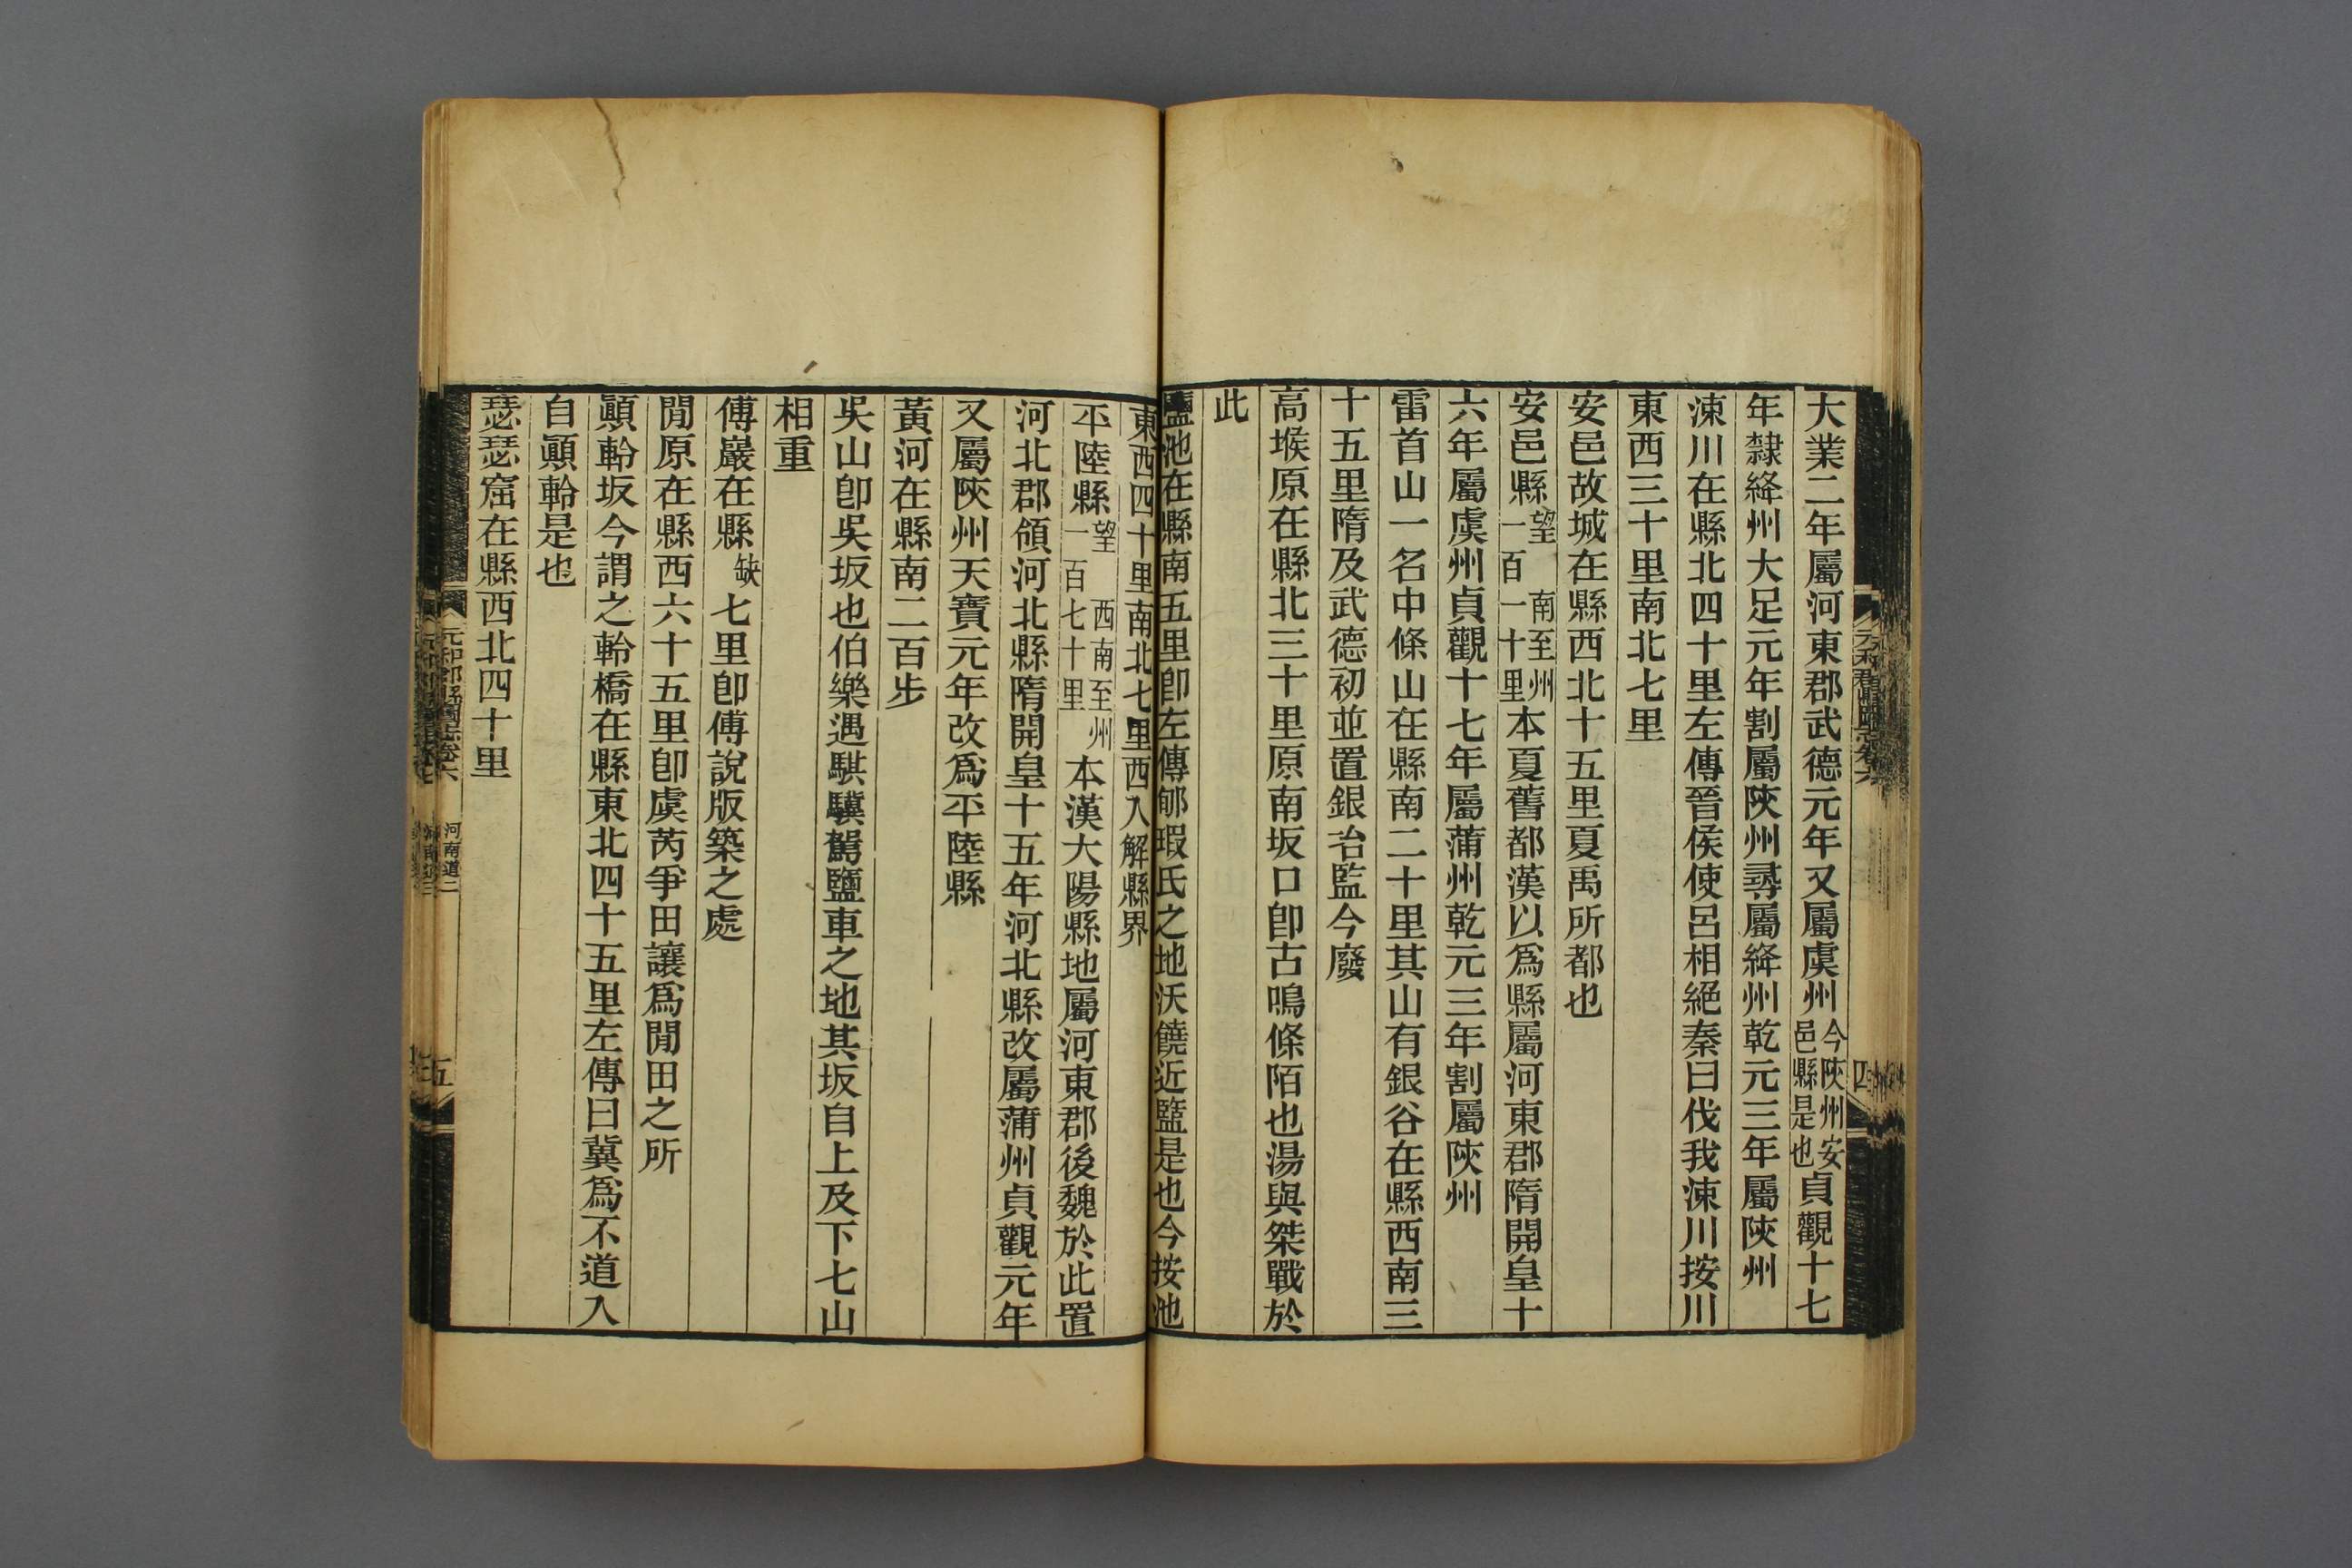 大業二年屬河東郡武德元年又屬虞州今陝州安邑縣是也貞觀十七
年隸絳州大足元年割屬陝州尋屬絳州乾元三年屬陝州
涑川在縣北四十里左傳晉侯使呂相絕秦曰伐我涑川按川
東西三十里南北七里
安邑故城在縣西北十五里夏禹所都也
安邑縣望南至州一百一十里本夏舊都漢以為縣屬河東郡隋開皇十
六年屬虞州貞觀十七年屬蒲州乾元三年割屬陝州
雷首山一名中條山在縣南二十里其山有銀谷在縣西南三
十五里隋及武德初並置銀冶監今廢
高堠原在縣北三十里原南坂口卽古鳴條陌也湯與桀戰於
此
鹽池在縣南五里卽左傳郇瑕氏之地沃饒近鹽是也今按池
東西四十里南北七里西入解縣界
平陸縣望西南至州一百七十里本漢大陽縣地屬河東郡後魏於此置
河北郡領河北縣隋開皇十五年河北縣改屬蒲州貞觀元年
又屬陝州天寶元年改爲平陸縣
黃河在縣南二百步
吳山卽吳坂也伯樂遇騏驥駕鹽車之地其坂自上及下七山
相重
傅巖在縣缺七里卽傅說版築之處
閒原在縣西六十五里卽虞芮爭田讓爲閒田之所
顚軨坂今謂之軨橋在縣東北四十五里左傳曰冀爲不道入
自顚軨是也
瑟瑟窟在縣西北四十里
元和郡縣圖志卷六 河南道二 五